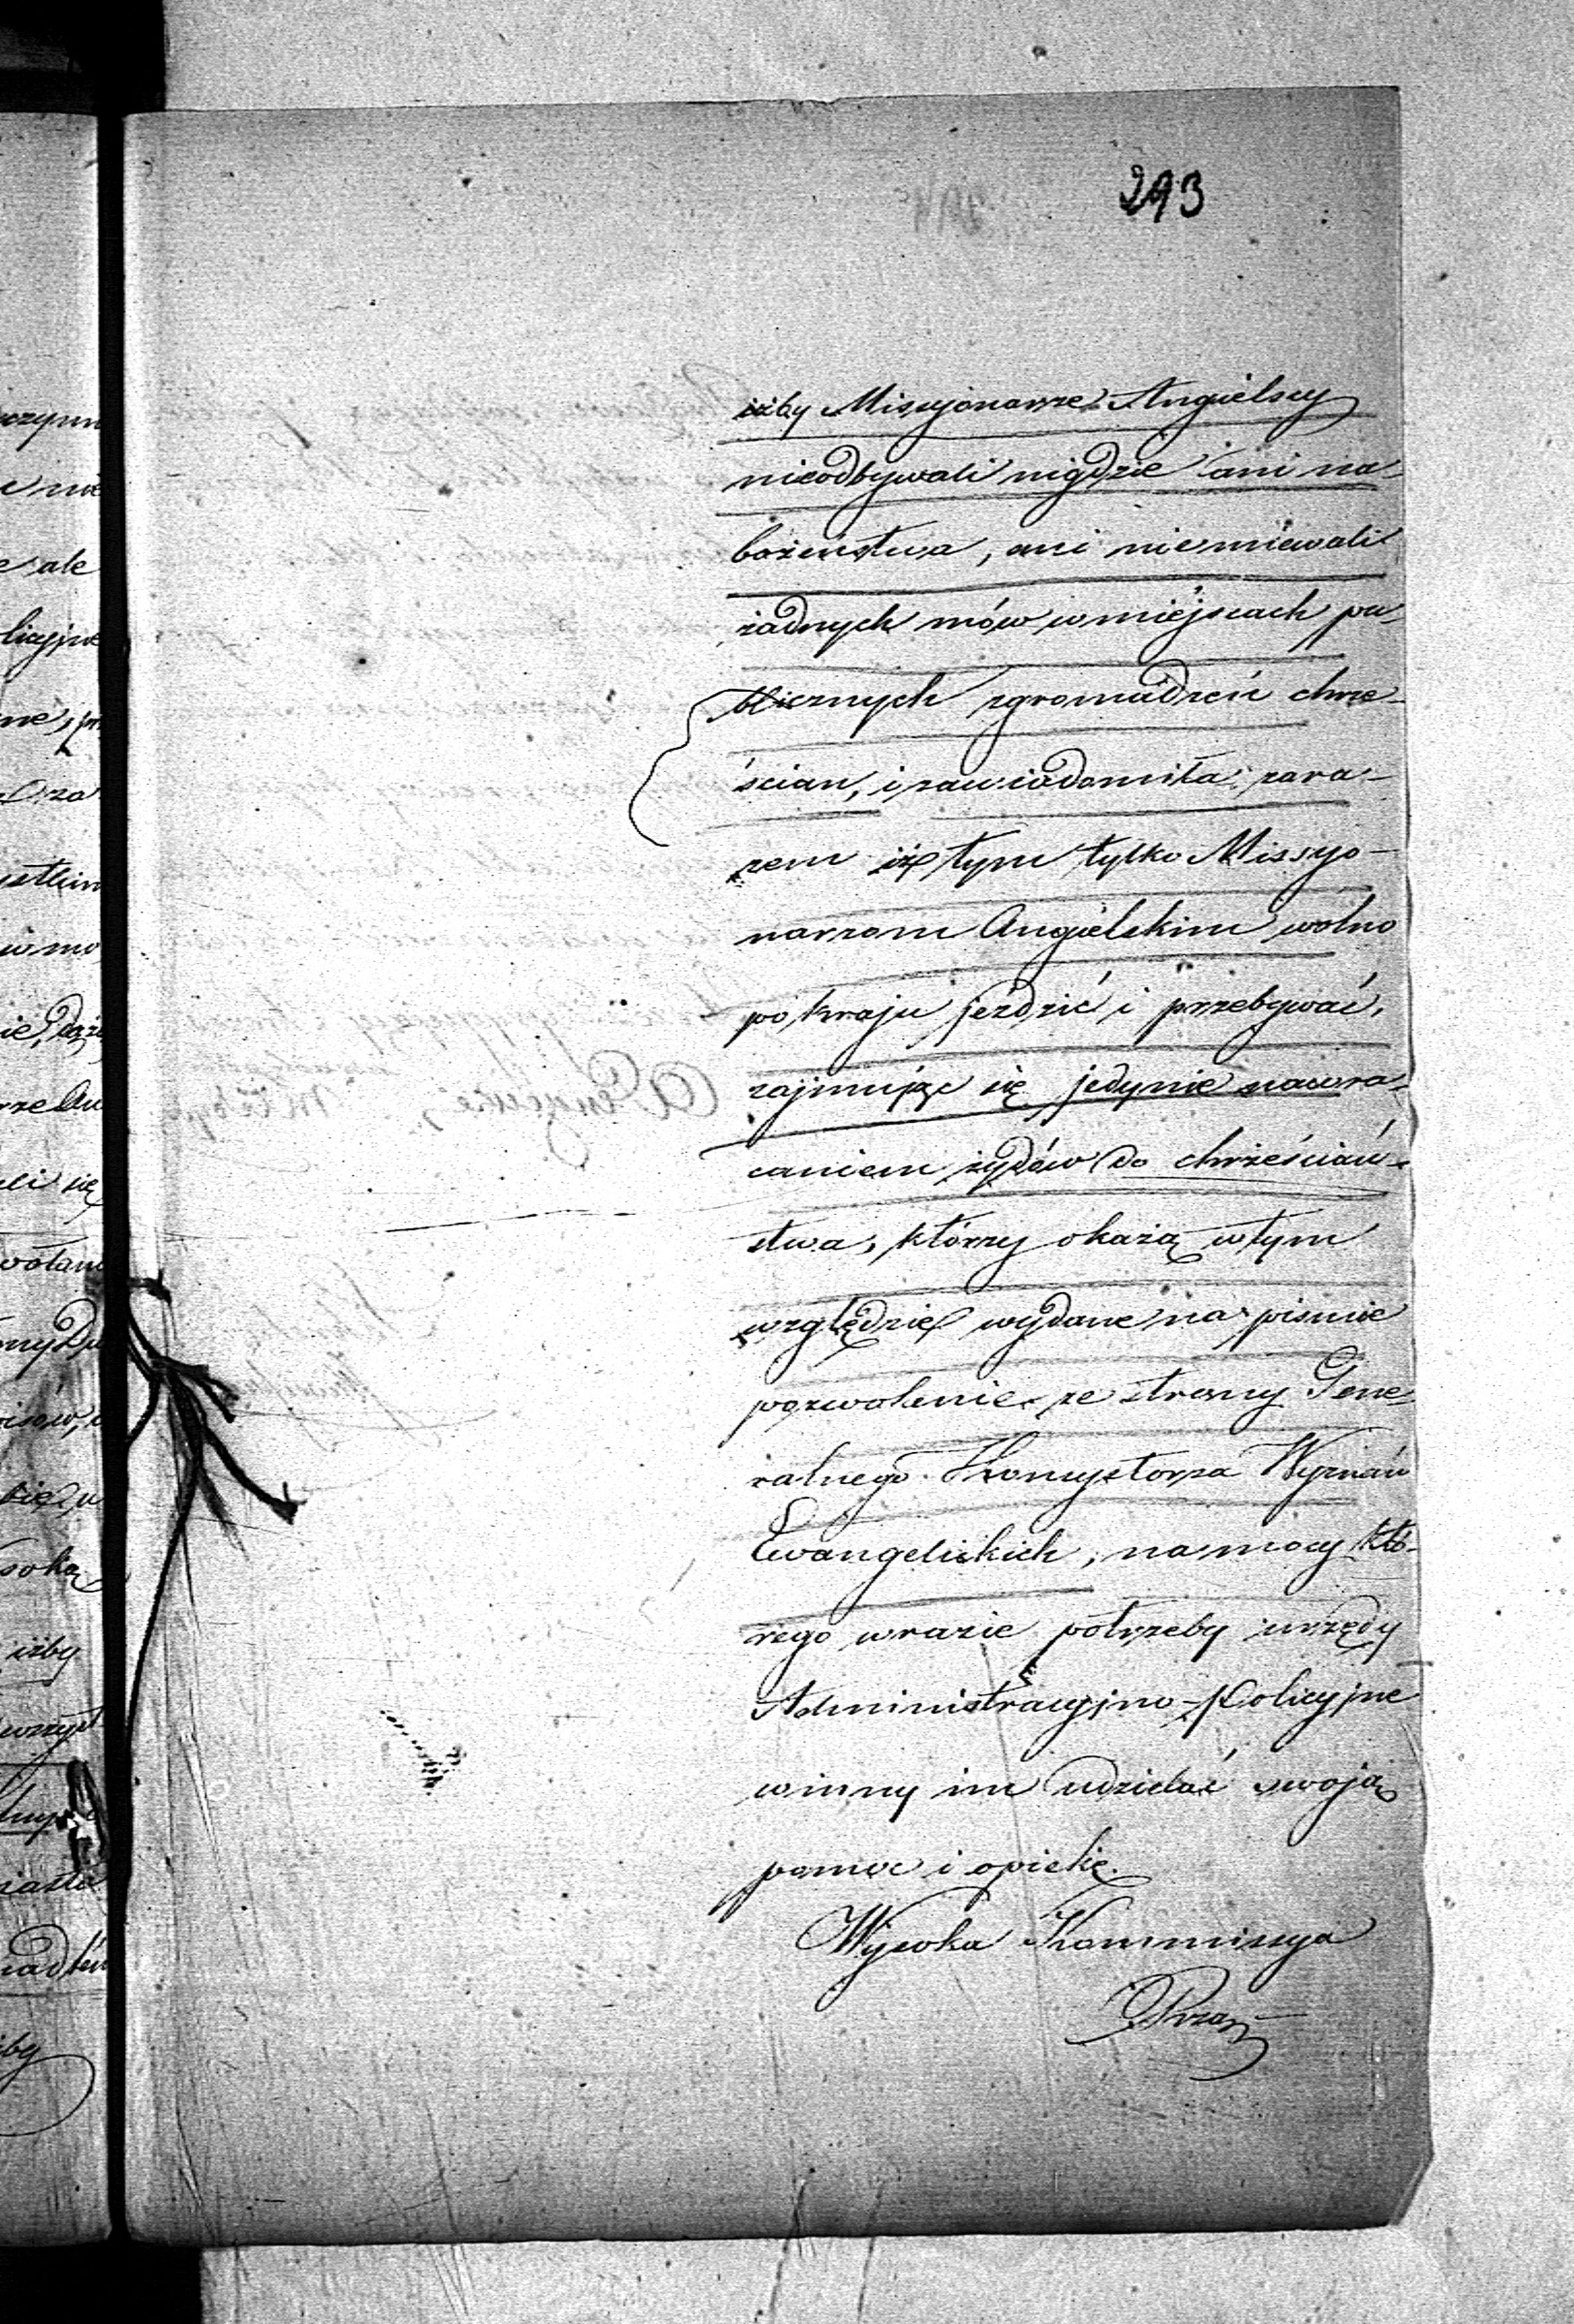 293
iżby Missyonarze Angielscy
nieodbywali nigdzie ani na-
bożeństwa, ani niemiewali
żadnych mów w miejscach pu-
blicznych zgromadzeń chrze-
ścian, i zawiadomiła zara-
zem iż tym tylko Missyo-
narzom Angielskim wolno
po kraju jeździć i przebywać,
zajmując się jedynie nawra-
caniem żydów do chrześciań-
stwa, którzy okażą w tym
względzie wydane na piśmie
pozwolenie ze strony Gene-
ralnego Konsystorza Wyznań
Ewangelickich, na mocy któ-
rego w razie potrzeby urzędy
Administracyjno-Policyjne
winny im udzielać swoją
pomoc i opiekę.
Wysoka Kommissya